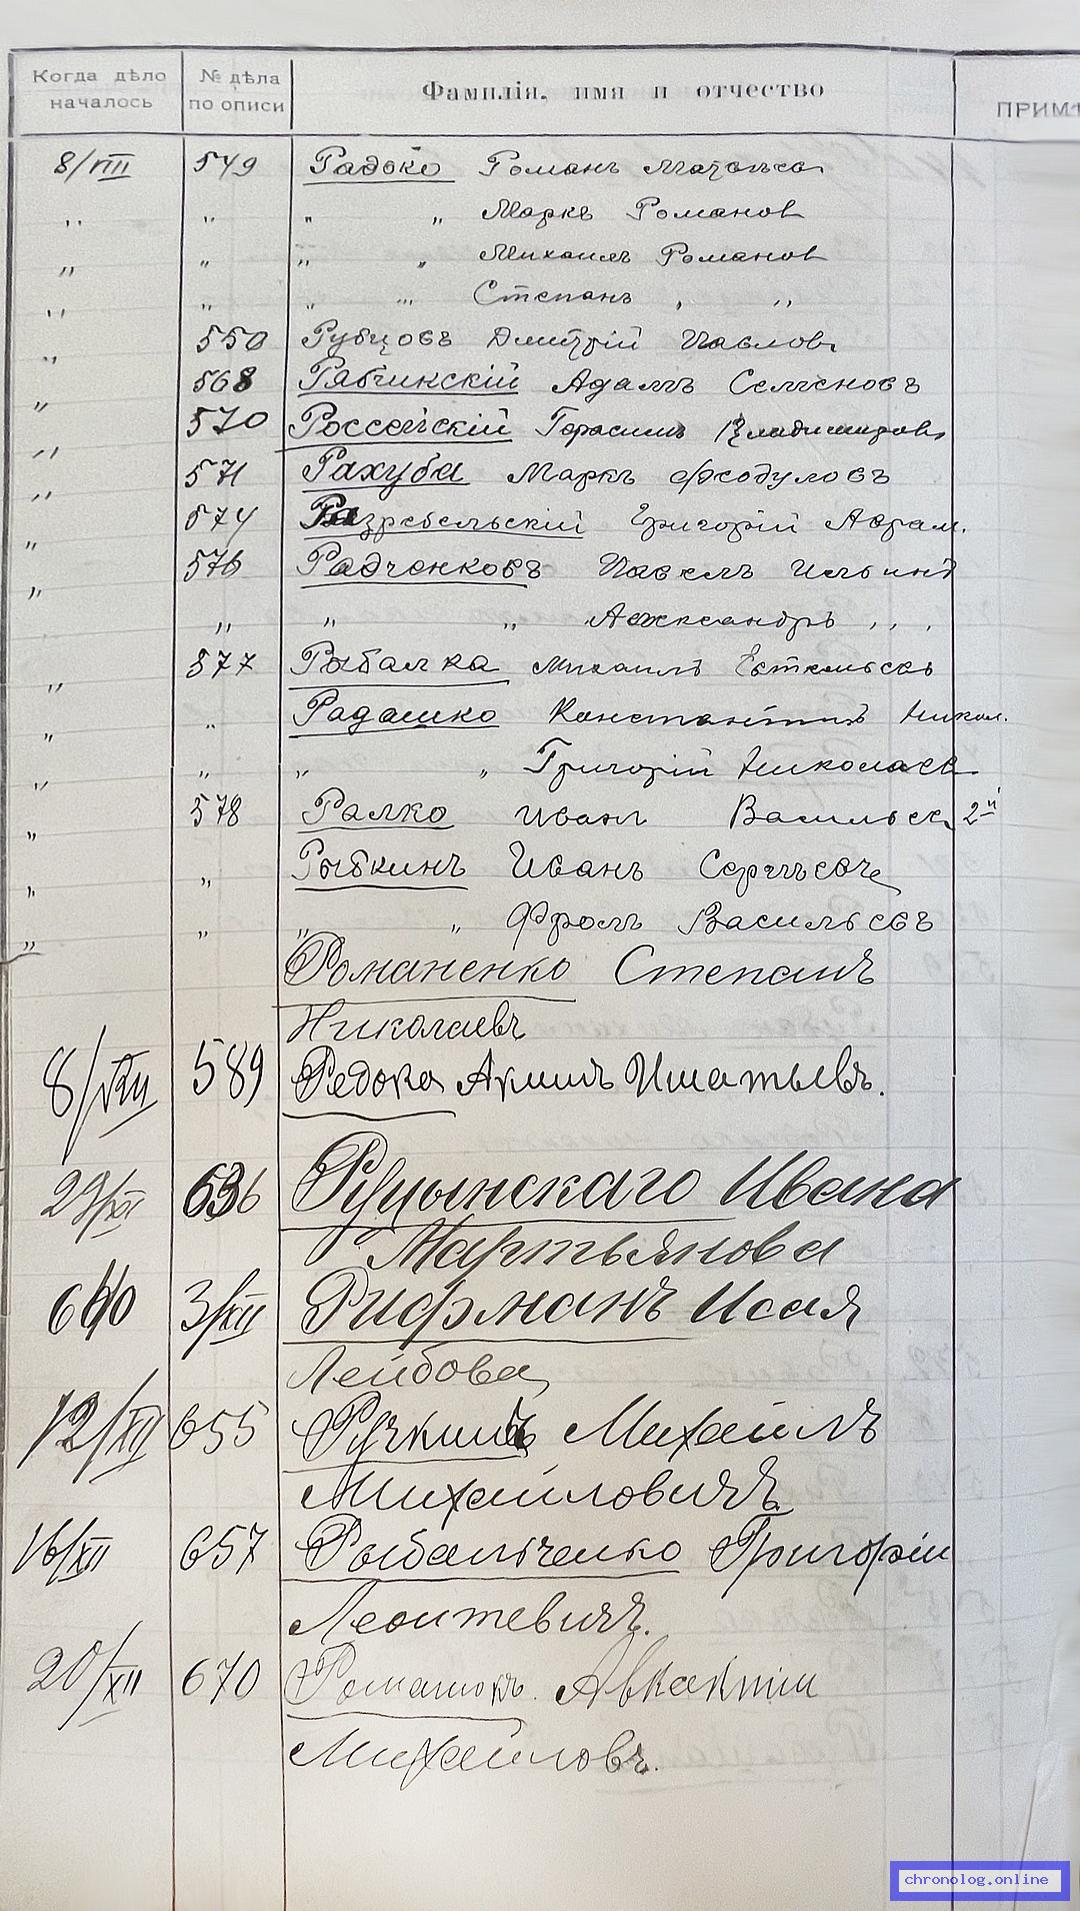 Когда дѣло началось № дѣла по описи Фамилія, имя и отчество ПРИМѢ
8/VIII 549 Радоко Романъ
„ „ „ „ Маркъ Романов
„ „ „ „ Михаилъ Романов
„ „ „ „ Степанъ „ „
„ 550 Рубцовъ Дмитрій Павловъ
„ 568 Рябчинскій Адамъ Семеновъ
„ 570 Россейскій Герасимъ Владимировъ
„ 571 Рахуба Маркъ Феодуловъ
„ 574 Григорій Аврам.
„ 576 Радченковъ Павелъ Ильинъ
„ „ „ Александръ „ „
„ 577 Рыбалка Михаилъ
„ „ Радашко Константинъ Никол.
„ „ „ „ Григорій Николаев
„ 578 Ралко Иванъ Васильев 2й
„ „ Рыбкинъ Иванъ
„ „ „ „ Фролъ Васильевъ
Романенко Степанъ
Николаевъ
8/VIII 589 Редока
636 Ивана
Мартьянова
640 3/XII Рифманъ Исая
Лейбова
12/XII 655 Ручкинъ Михаилъ
Михайловичъ
16/XII 657 Рыбальченко Григорій
Леонтевичъ.
20/XII 670 Авксктій
Михайловъ.
chronolog.online